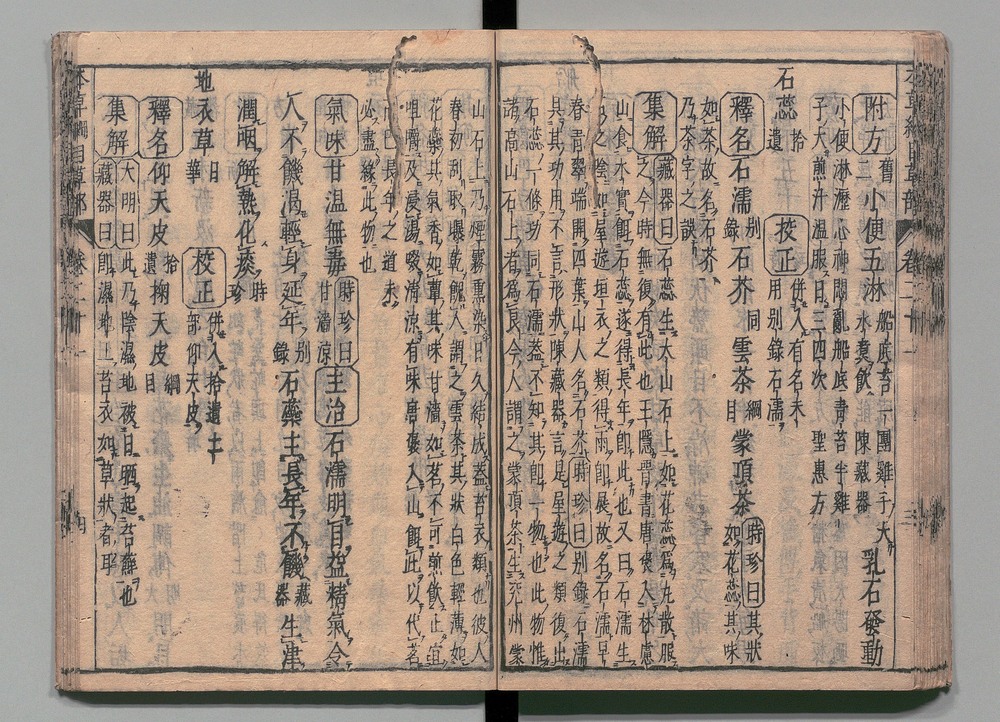 附方舊二小便五淋船底苔一團雞子大水煮飲陳藏器乳石發動
小便淋瀝心神悶亂船底青苔半雞
子大煎汁溫服日三四次聖惠方
石蕊拾遺校正併入有名未用別錄石濡
釋名石濡別錄石芥同雲茶綱目蒙頂茶時珍曰其狀如花蕊其味
如茶故名石芥乃茶字之誤
集解藏器曰石蕊生太山石上如花蕊為丸散服
之今時無復有此也王隱晉書庾褒入林慮
山食木實餌石蕊遂得長年即此也又曰石濡生
石之陰如屋遊垣衣之類得雨即展故名石濡早
春青翠端開四葉山人名石芥時珍曰別錄石濡
具其功用不言形狀陳藏器言是屋遊之類復出
石蕊一條功同石濡蓋不知其即一物也此物惟
諸高山石上者為良今人謂之蒙頂茶生兗州蒙
山石上乃煙霧熏染日久結成蓋苔衣類也彼人
春初刮取曝乾餽人謂之雲茶其狀白色輕薄如
花蕊其氣香如蕈其味甘濇如茗不可煎飲止宜
咀嚼及浸湯啜清涼有味庾褒入山餌此以代茗
而已長年之道未必盡緣此物也
氣味甘溫無毒時珍曰甘濇涼主治石濡明目益精氣令
人不饑渴輕身延年別錄石蕊主長年不饑藏器生津
潤咽解熱化痰時珍
地衣草日華校正併入拾遺土部仰天皮
釋名仰天皮拾遺掬天皮綱目
集解大明曰此乃陰濕地被日晒起苔蘚也
藏器曰即濕地上苔衣如草狀者耳